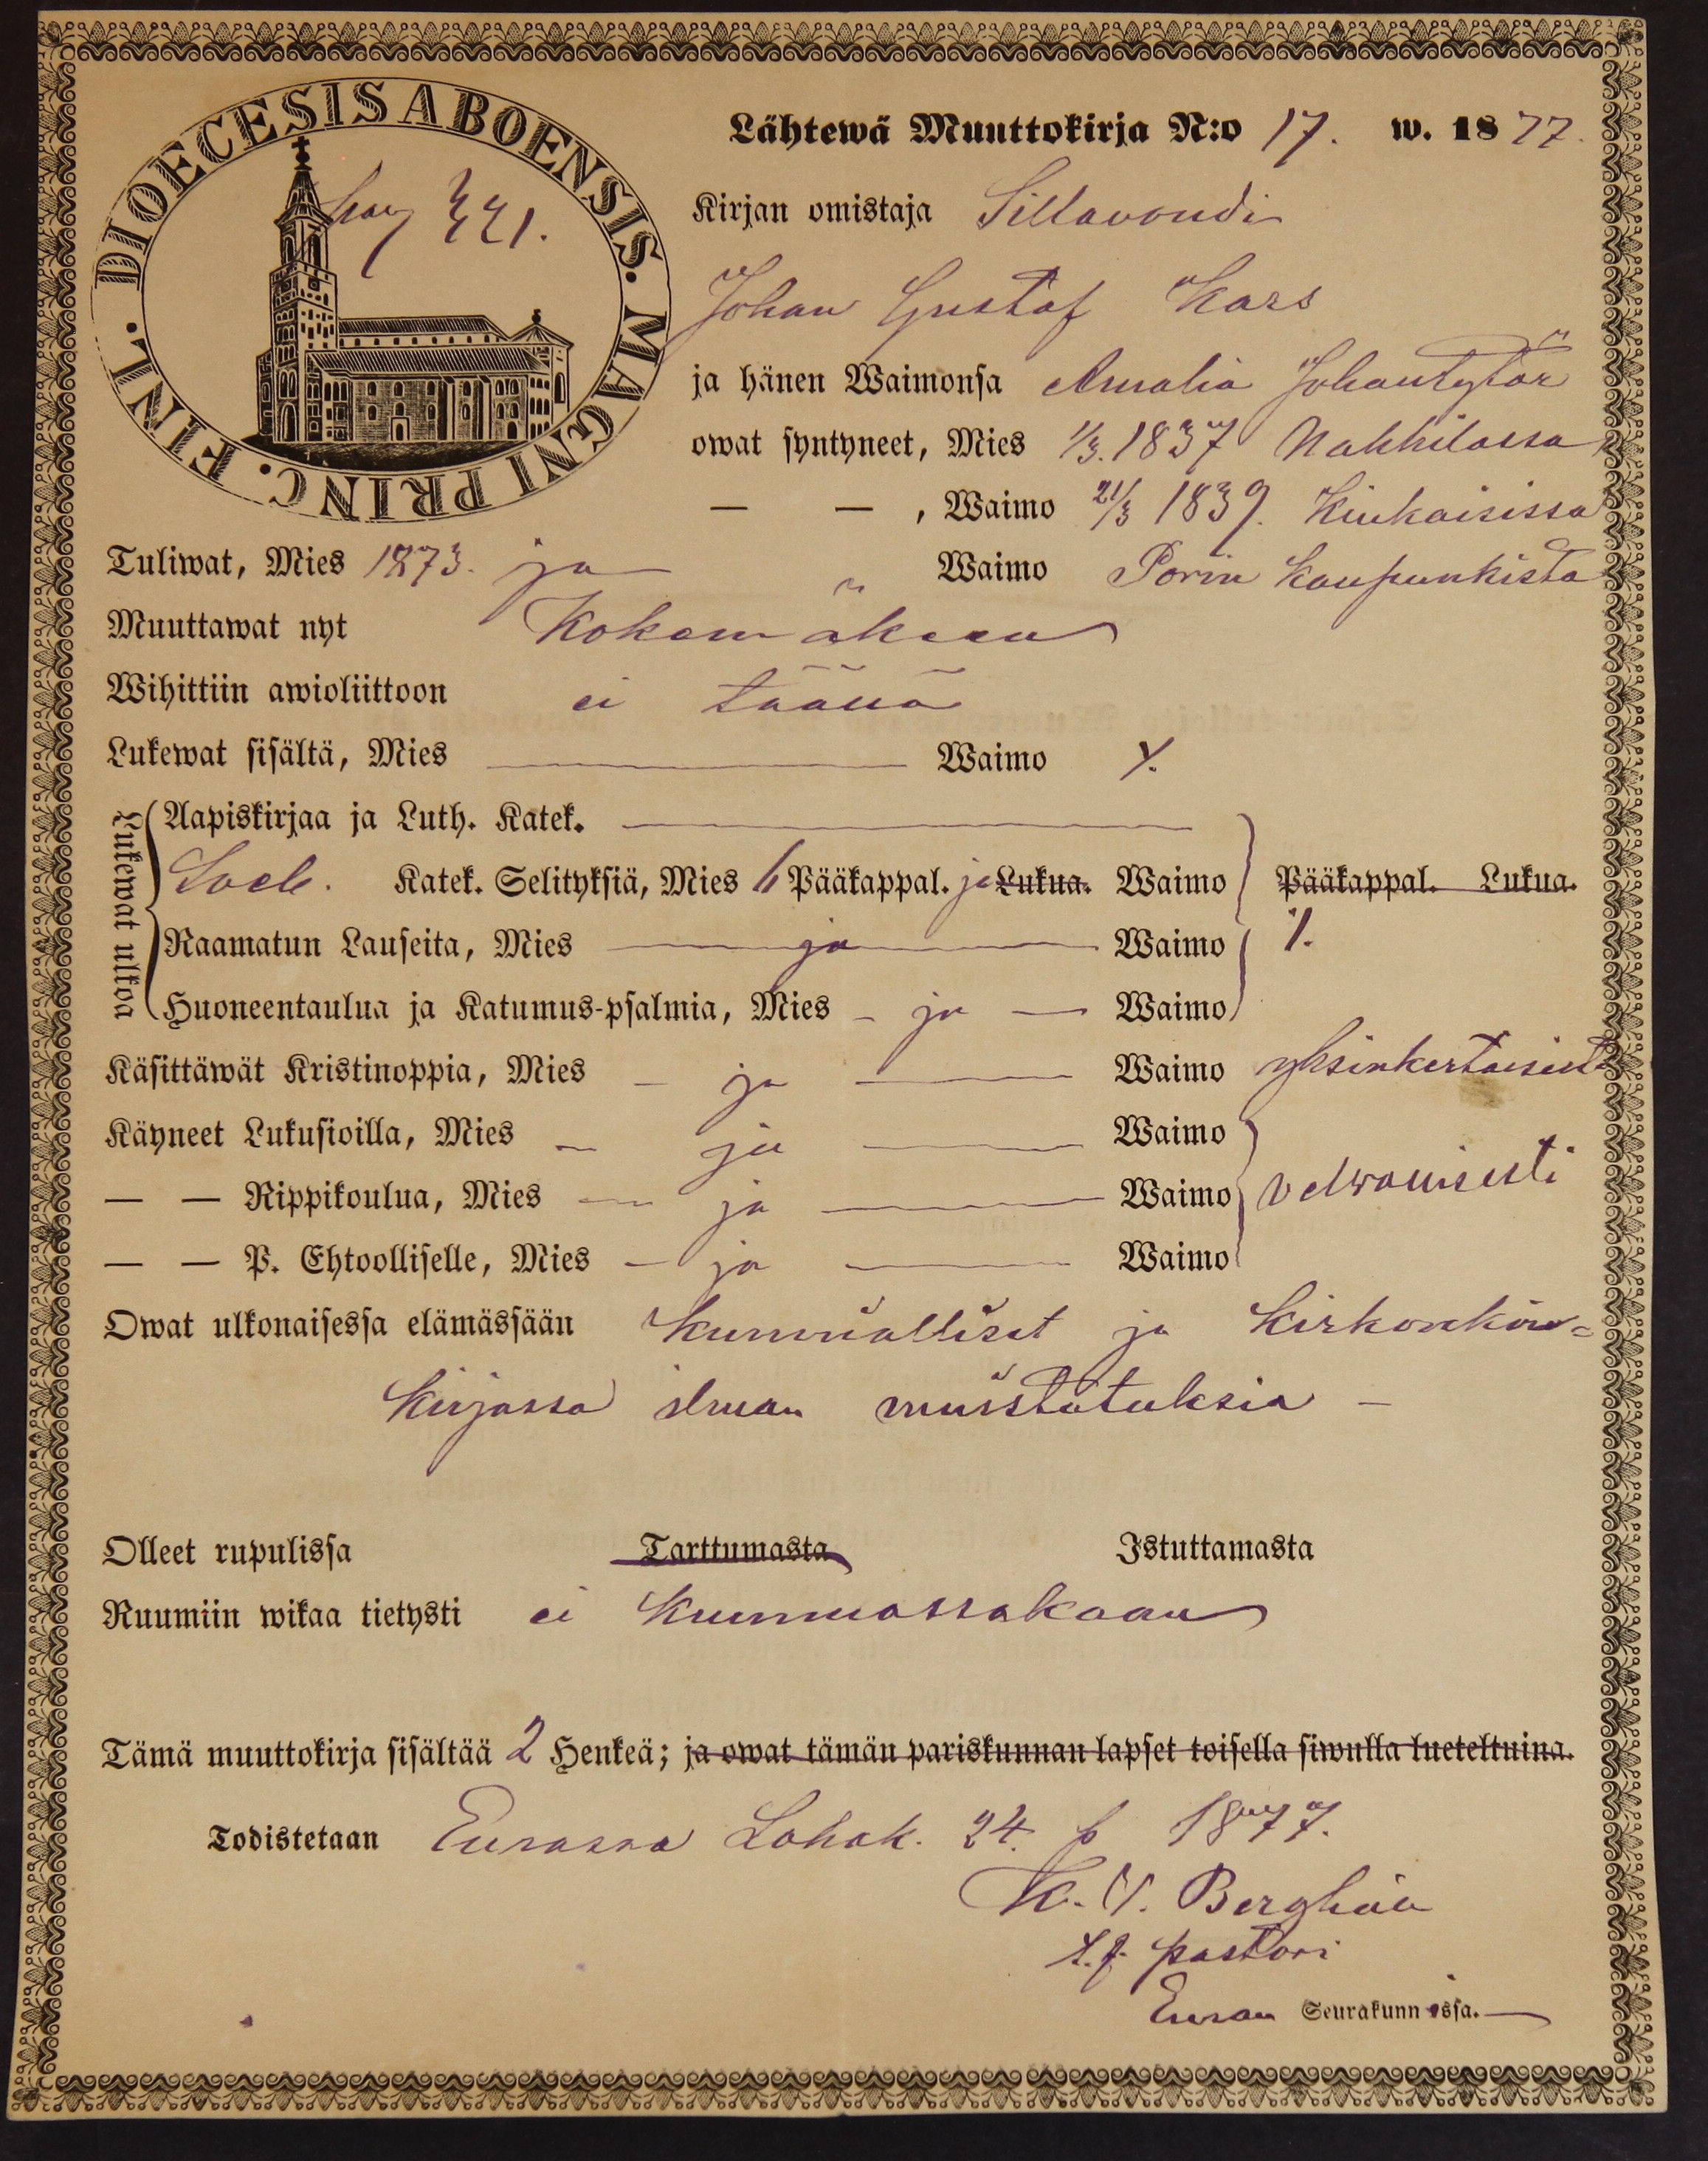 DIOECESIS ABOENSIS. MAGNI PRINC. FINL.
Lähtewä Muuttokirja N:o 17. w. 1877.
Kirjan omistaja Siltavoudi
Johan Gustaf Kars
ja hänen Waimonsa Amalia Johantytär
owat syntyneet, Mies 1/3. 1837 Nakkilassa
— — , Waimo 21/3 1839. Kiukaisissa
Tuliwat, Mies 1873. ja Waimo Porin kaupunkista
Muuttawat nyt Kokemäkeen
Wihittiin awioliittoon ei täällä
Lukewat sisältä, Mies Waimo
Lukewat ulkoa
Aapiskirjaa ja Luth. Katek.
Katek. Selityksiä, Mies 6 Pääkappal. ja Lukua. Waimo Pääkappal. Lukua.
Raamatun Lauseita, Mies ja Waimo
Huoneentaulua ja Katumus-psalmia, Mies ja Waimo
Käsittäwät Kristinoppia, Mies ja Waimo yksinkertaisesti
Käyneet Lukusioilla, Mies ja Waimo
— — Rippikoulua, Mies ja Waimo velwollisesti
— — P. Ehtoolliselle, Mies ja Waimo
Owat ulkonaisessa elämässään kunnialliset ja kirkon
kirjassa ilman muistutuksia –
Olleet rupulissa Tarttumasta Istuttamasta
Ruumiin wikaa tietysti ei kummassakaan
Tämä muuttokirja sisältää 2 Henkeä; ja owat tämän pariskunnan lapset toisella siwulla lueteltuina.
Todistetaan Eurassa Lokak. 24 p 1877.
K. V. Berghän
pastori
Euran Seurakunnassa.